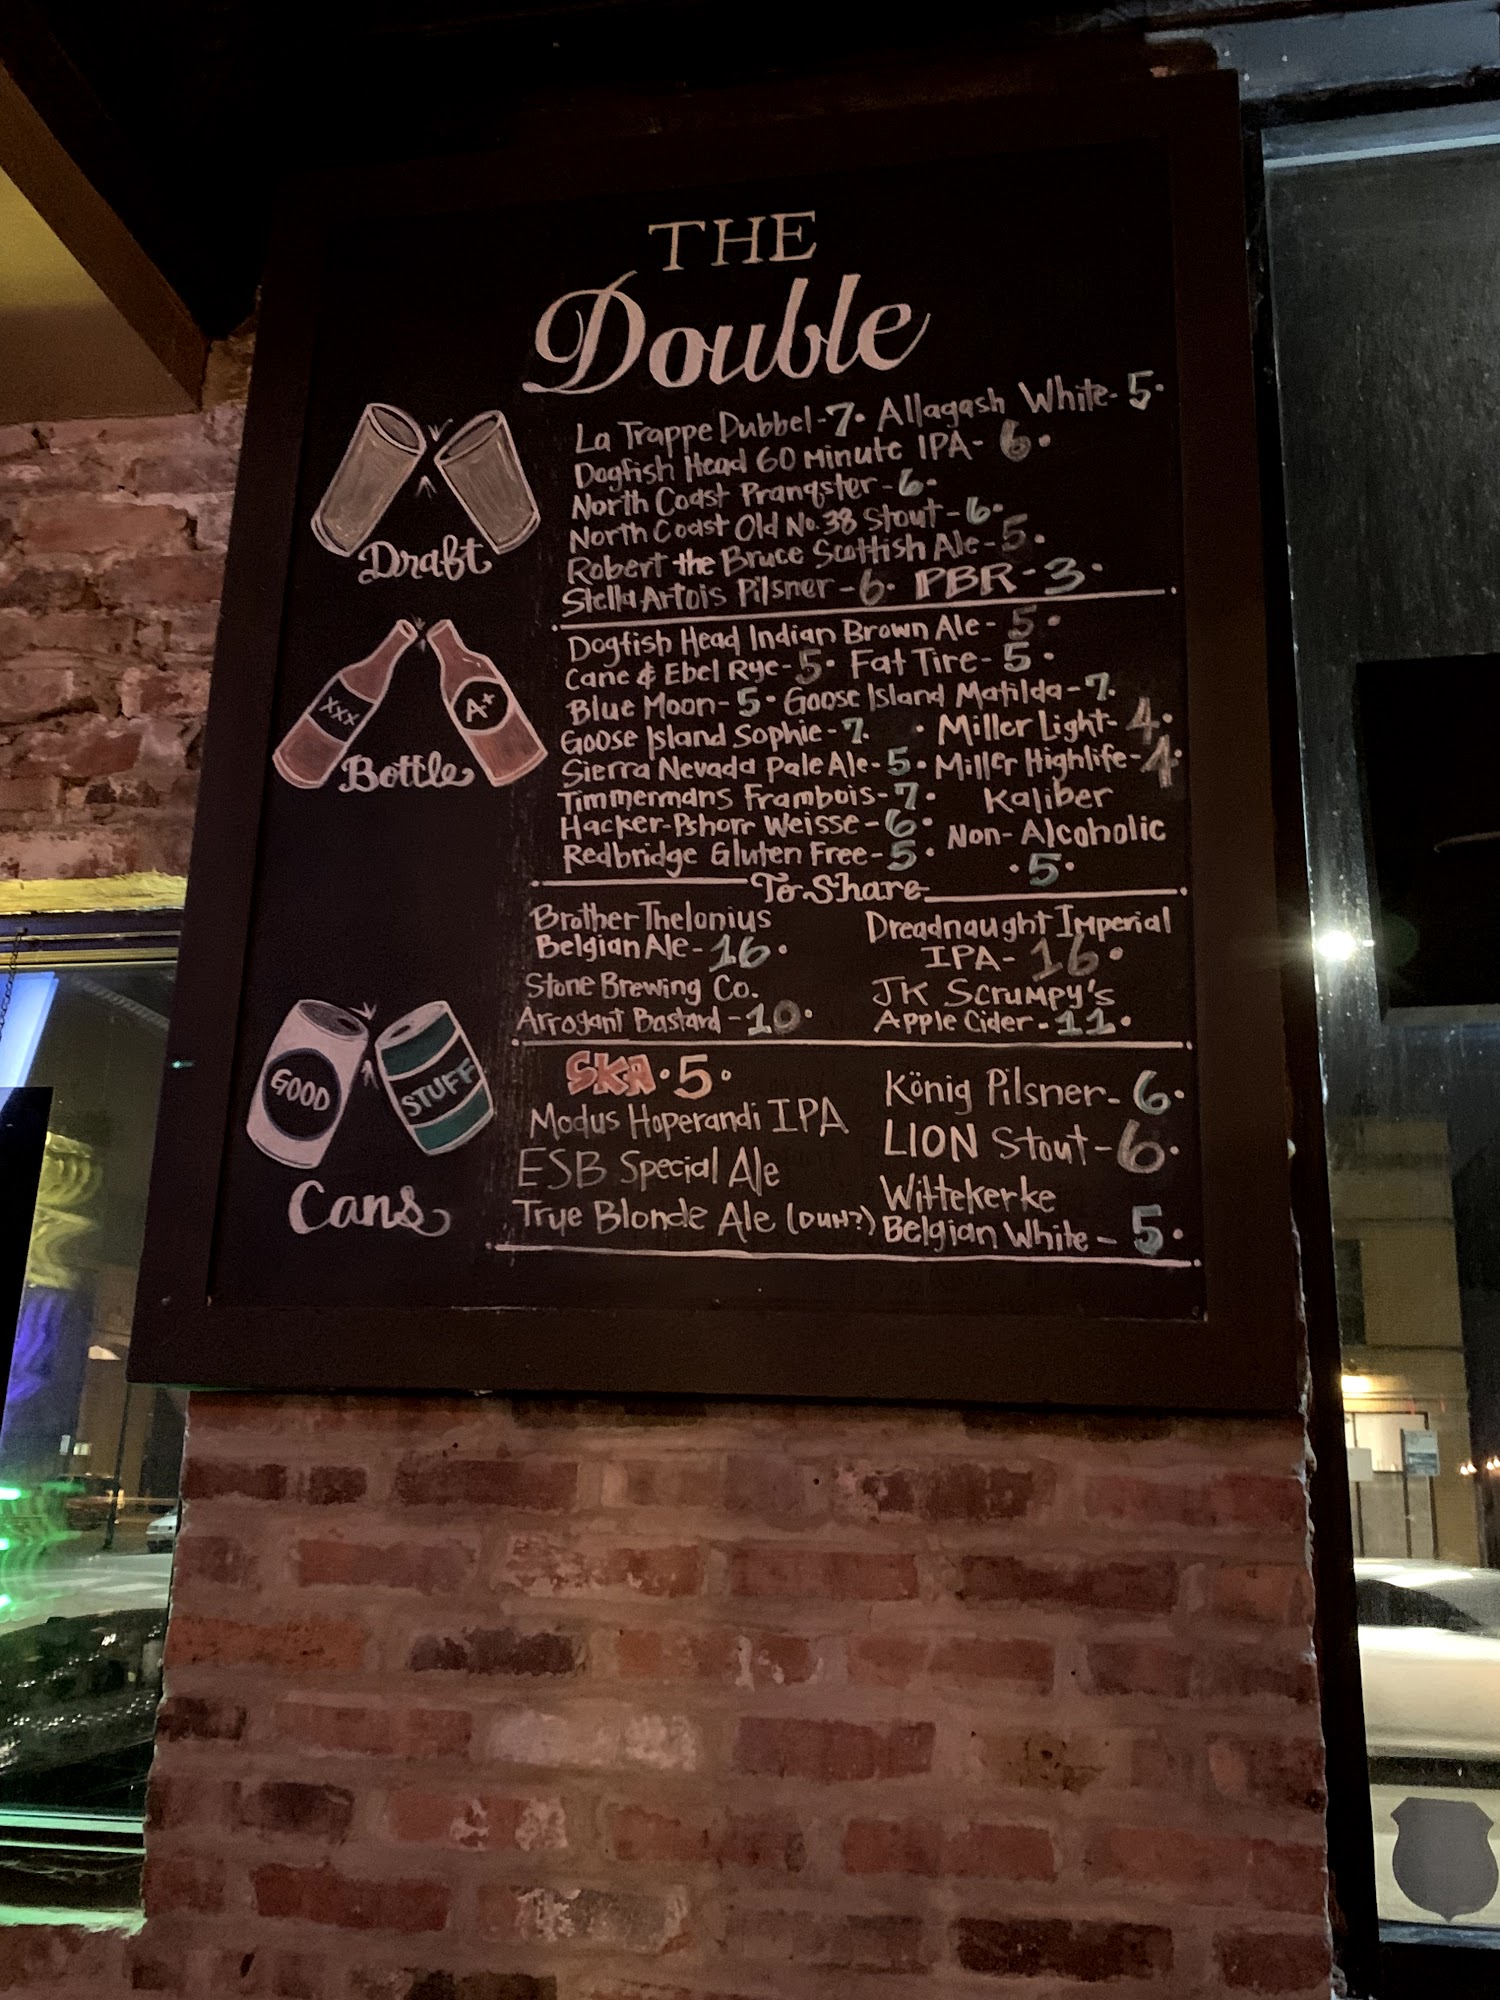 THE
Double
La Trappe Dubbel-7• Allagash White-5•
Dogfish Head 60 Minute IPA-6•
North Coast Prangster-6•
North Coast Old No. 38 Stout-6•
Robert the Bruce Scottish Ale-5•
Stella Artois Pilsner-6• PBR-3•
Draft
Dogfish Head Indian Brown Ale-5•
Cane & Ebel Rye-5• Fat Tire-5•
Blue Moon-5• Goose Island Matilda-7.
Goose Island Sophie-7. • Miller Light-4•
Sierra Nevada Pale Ale-5• Miller Highlife-4•
Timmermans Frambois-7• Kaliber
Hacker-Pshorr Weisse-6• Non-Alcoholic
Redbridge Gluten Free-5• •5•
XXX
A+
Bottle
To Share
Brother Thelonius
Belgian Ale-16•
Stone Brewing Co.
Arrogant Bastard-10•
Dreadnaught Imperial
IPA-16•
JK Scrumpy's
Apple Cider-11•
GOOD
STUFF
Cans
SKA•5•
Modus Hoperandi IPA
ESB Special Ale
True Blonde Ale (DUH?)
König Pilsner-6•
LION Stout-6•
Wittekerke
Belgian White-5•